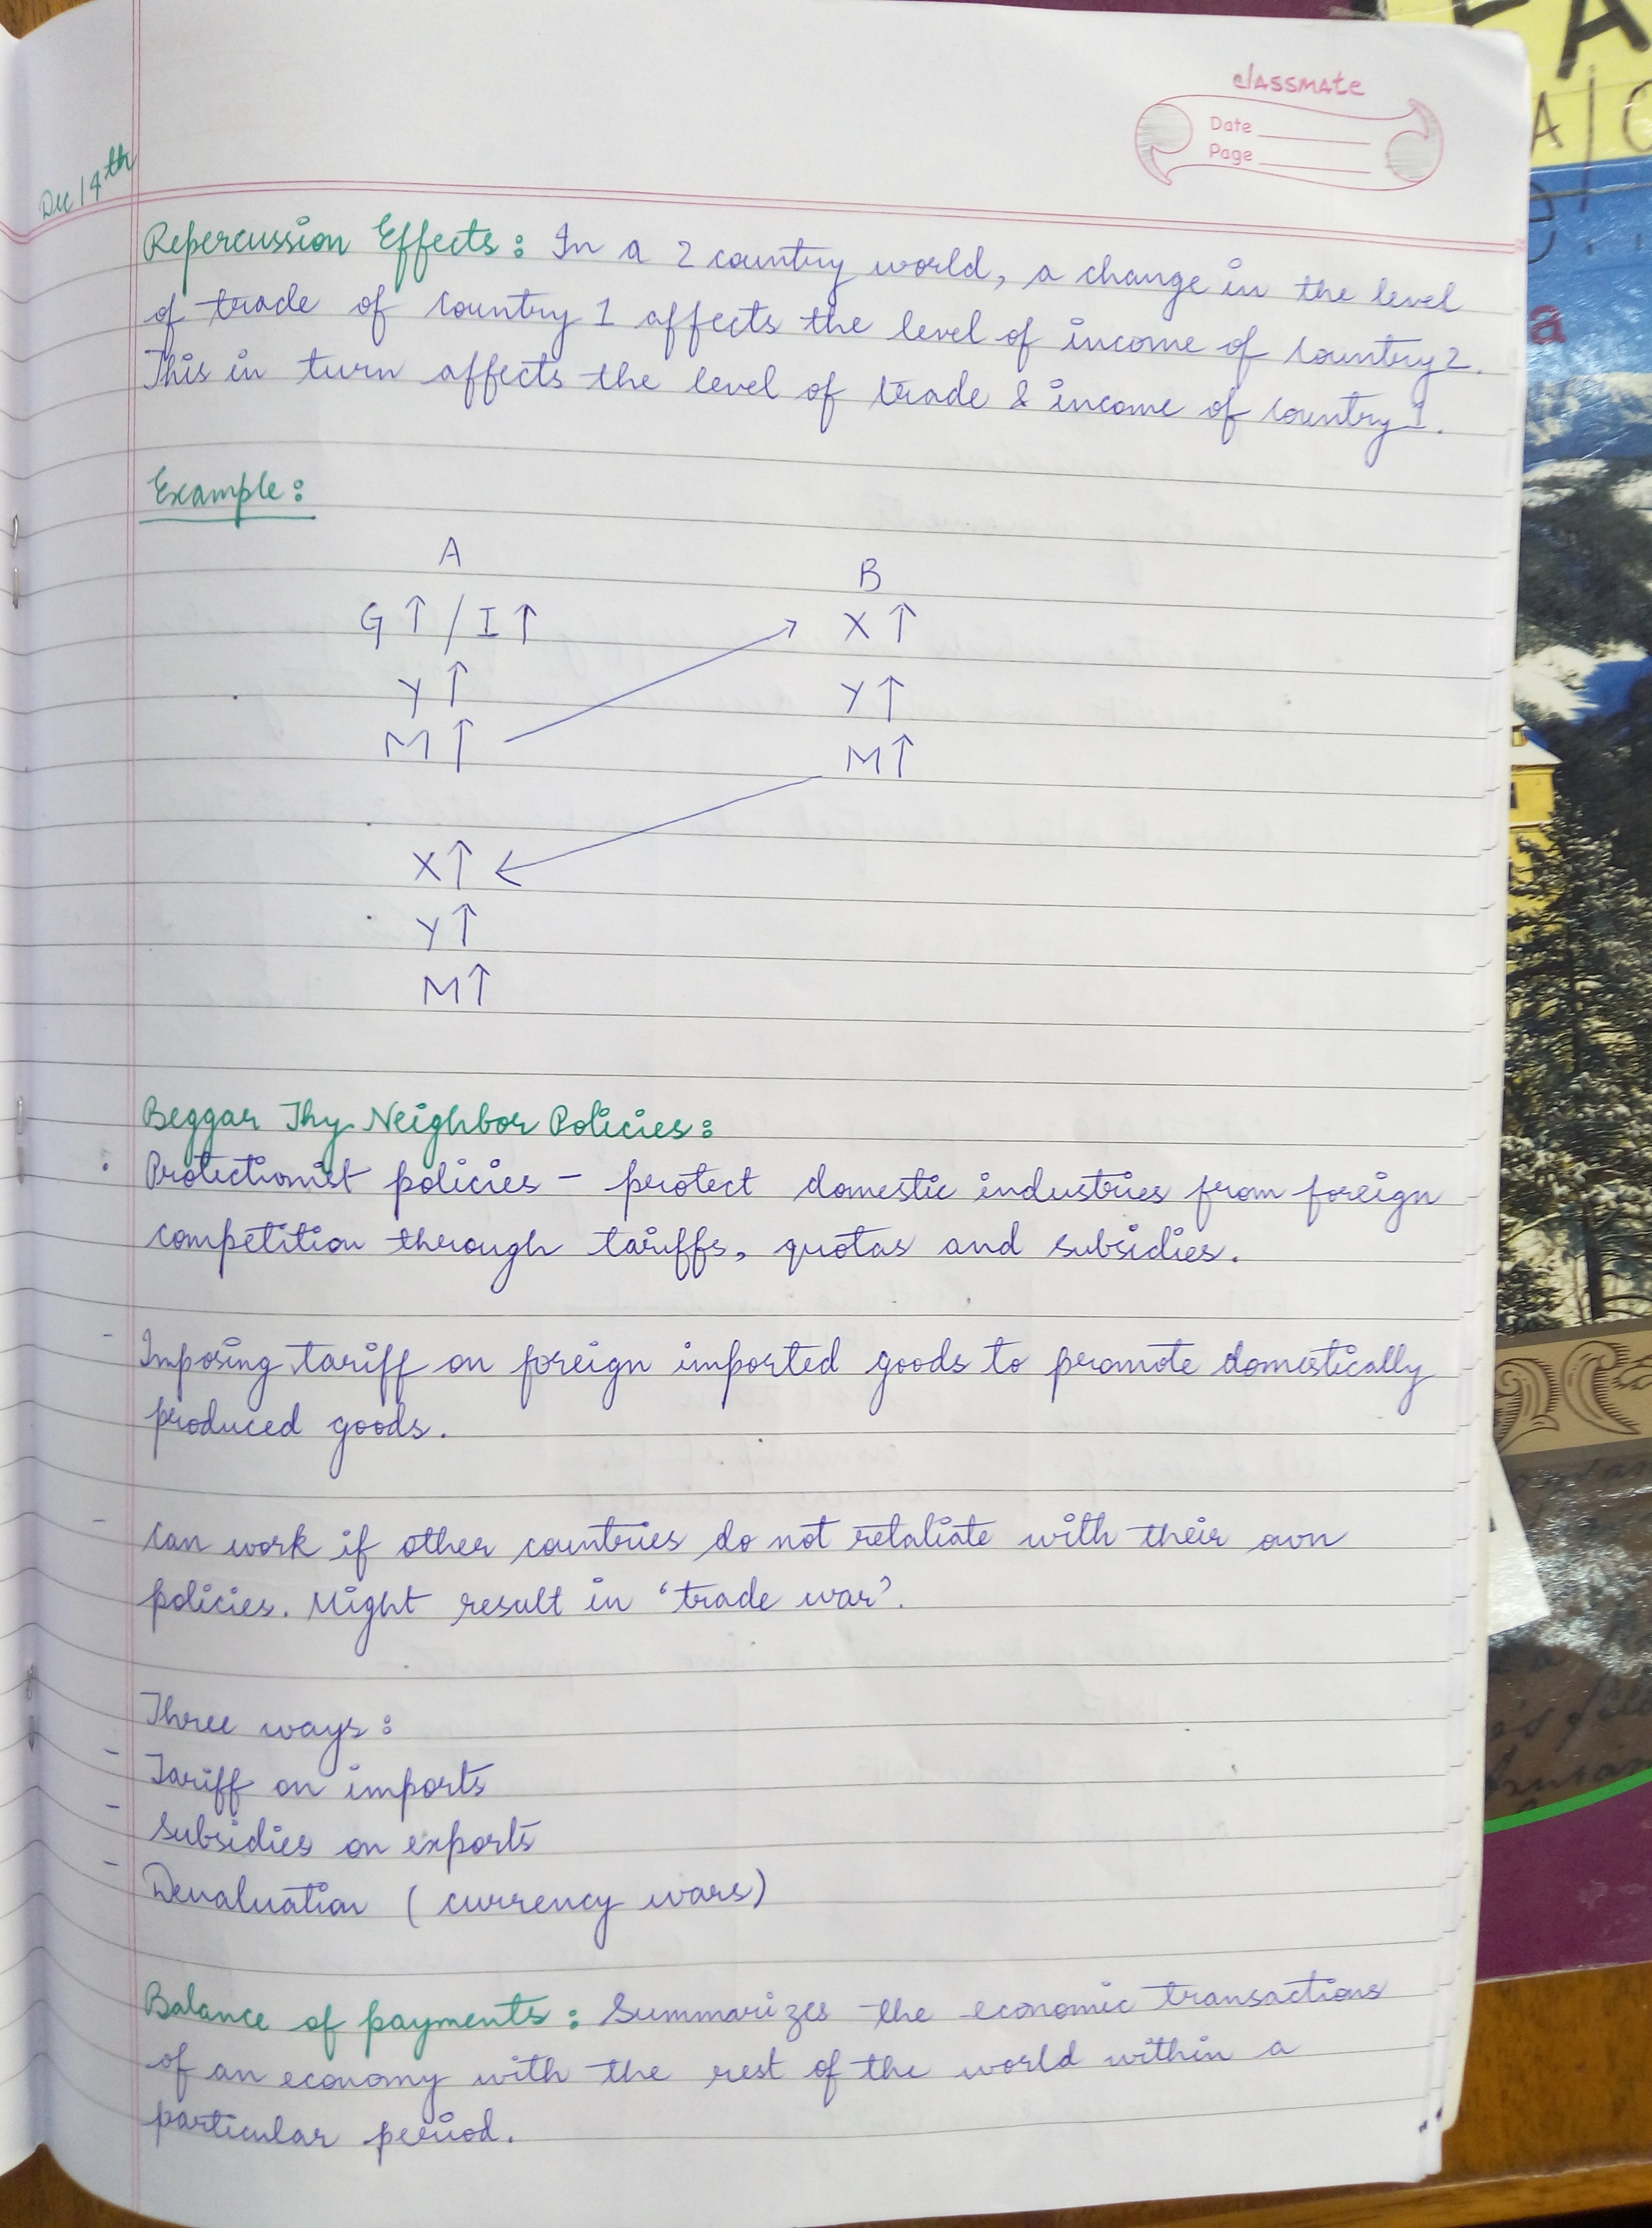 classmate
Date
Page
Dec 14th
Repercussion Effects: In a 2 country world, a change in the level
of trade of country 1 affects the level of income of country 2.
This in turn affects the level of trade & income of country 1.
Example:
A B
G↑ / I↑ X↑
Y↑ Y↑
M↑ M↑
X↑
Y↑
M↑
Beggar Thy Neighbor Policies:
• Protectionist policies - protect domestic industries from foreign
competition through tariffs, quotas and subsidies.
- Imposing tariff on foreign imported goods to promote domestically
produced goods.
- Can work if other countries do not retaliate with their own
policies. Might result in 'trade war'.
Three ways:
- Tariff on imports
- Subsidies on exports
- Devaluation (currency wars)
Balance of payments: Summarizes the economic transactions
of an economy with the rest of the world within a
particular period.